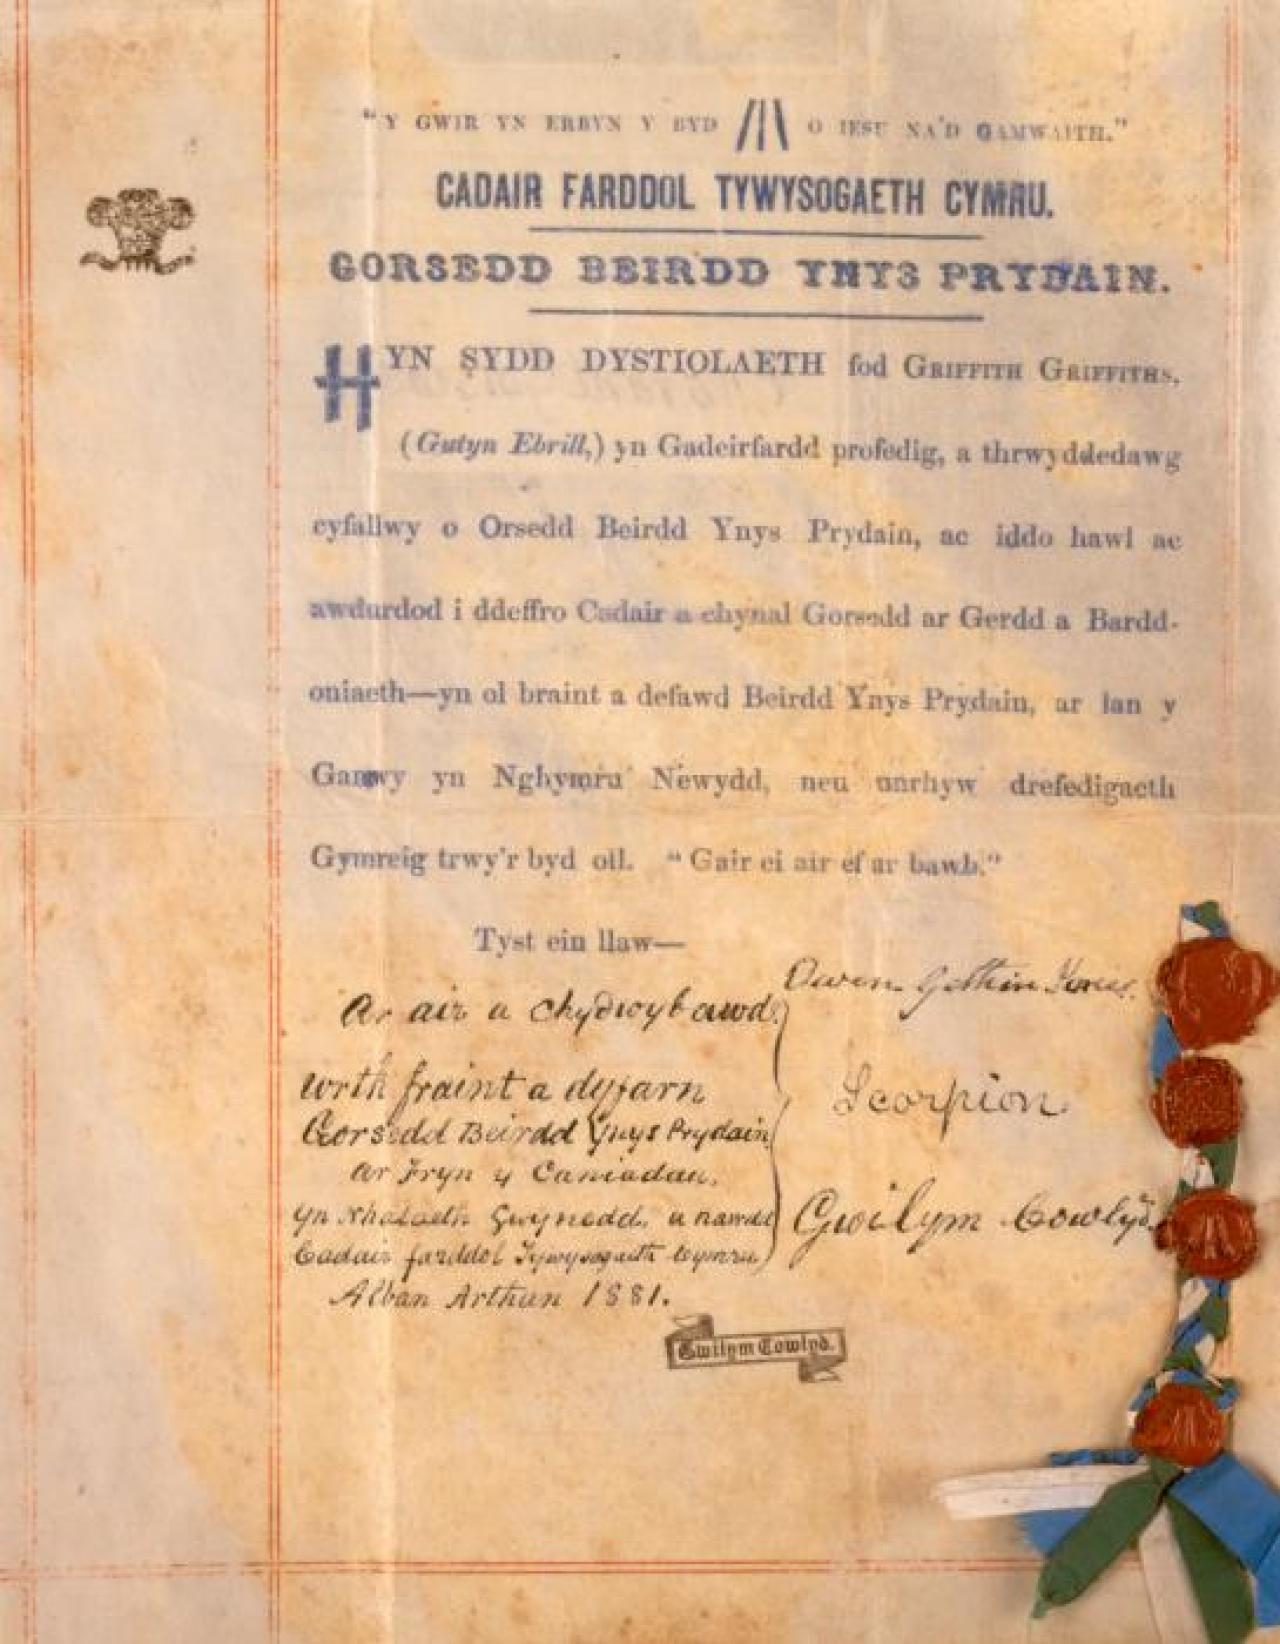 "Y GWIR YN ERBYN Y BYD /|\ O IESU NA'D GAMWAITH."
CADAIR FARDDOL TYWYSOGAETH CYMRU.
GORSEDD BEIRDD YNYS PRYDAIN.
HYN SYDD DYSTIOLAETH fod GRIFFITH GRIFFITHS,
(Gutyn Ebrill,) yn Gadeirfardd profedig, a thrwyddedawg
cyfallwy o Orsedd Beirdd Ynys Prydain, ac iddo hawl ac
awdurdod i ddeffro Cadair a chynal Gorsedd ar Gerdd a Bardd-
oniaeth—yn ol braint a defawd Beirdd Ynys Prydain, ar lan y
Gamwy yn Nghymru Newydd, neu unrhyw drefedigaeth
Gymreig trwy'r byd oll. "Gair ei air ef ar bawb."
Tyst ein llaw—
Owen Gethin Jones.
Ar air a chydwybawd
wrth fraint a dyfarn
Scorpion
Gorsedd Beirdd Ynys Prydain
ar Fryn y Caniadau,
yn Nhalaeth Gwynedd, a nawdd
Gwilym Cowlyd
Cadair farddol Tywysogaeth Cymru
Alban Arthan 1881.
Gwilym Cowlyd.